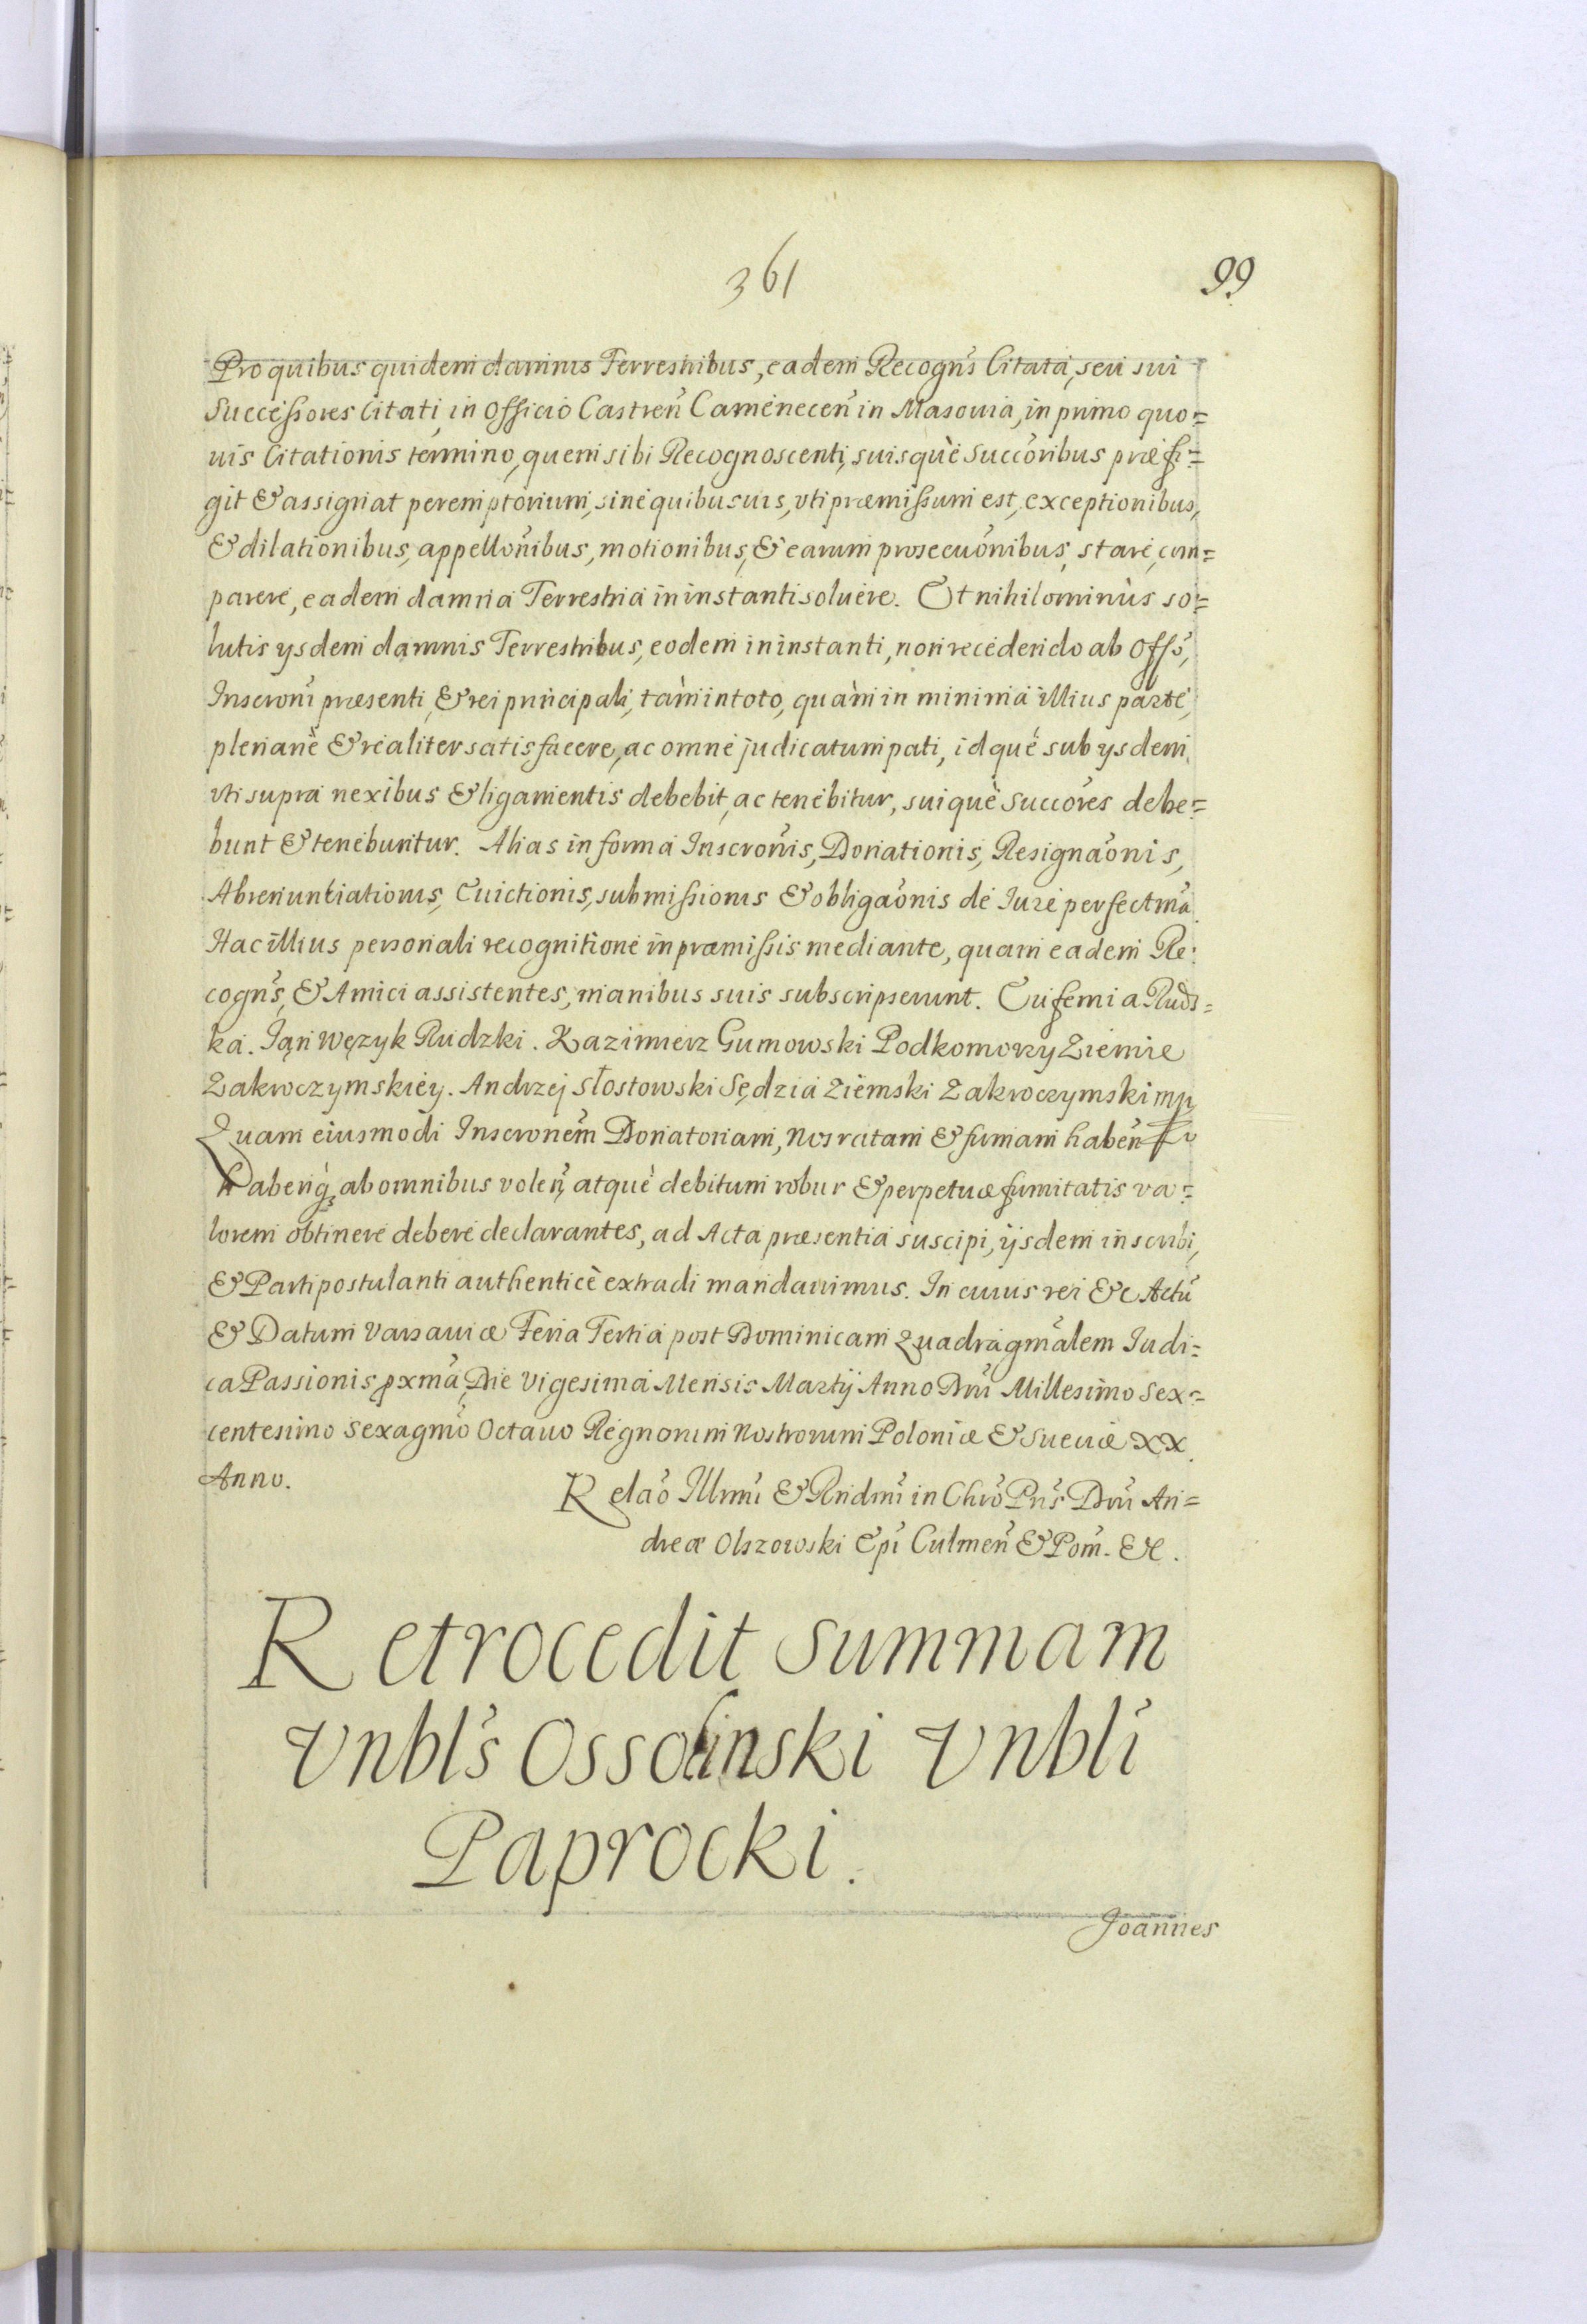 361
99
Pro quibus quidem damnis Terrestribus, eadem Recogns̄ Citata, seu sui
Successores Citati, in Officio Castren̄ Camenecen̄ in Masouia, in primo quo=
uis Citationis termino, quem sibi Recognoscenti, suisquè Succōribus præfi=
git & assignat peremptorium, sine quibusuis, vti præmissum est, exceptionibus,
& dilationibus, appellōnibus, motionibus, & earum prosecuōnibus, stare, com=
parere, eadem damna Terrestria in instanti soluere. Et nihilominùs so=
lutis ysdem damnis Terrestribus, eodem in instanti, non recedendo ab Offō,
Inscronī præsenti, & rei principali, tàm in toto, quàm in minima illius parte,
plenariè & realiter satisfacere, ac omne judicatum pati, idquè sub ysdem
vti supra nexibus & ligamentis debebit, ac tenebitur, suiquè Succōres debe=
bunt & tenebuntur. Alias in forma Inscronīs, Donationis, Resignaōnis,
Abrenuntiationis, Euictionis, submissionis & obligaōnis de Iure perfectmā.
Hac illius personali recognitione in præmissis mediante, quam eadem Re:
cogns̄, & Amici assistentes, manibus suis subscripserunt. Eufemia Rudz=
ka. Jąn Wężyk Rudzki. Kazimierz Gumowski Podkomorzy Ziemie
Zakroczymskiey. Andrzej Słostowski Sędzia Ziemski Zakroczymski mp
Quam eiusmodi Inscronem̄ Donatoriam, Nos ratam & firmam haben̄
Habenq̨ ab omnibus volen̄, atquè debitum robur & perpetuæ firmitatis va=
lorem obtinere debere declarantes, ad Acta præsentia suscipi, ijsdem inscribi,
& Parti postulanti authenticè extradi mandauimus. In cuius rei &c Actū
& Datum Varsauiæ Feria Tertia post Dominicam Quadragmālem Iudi=
ca Passionis pxmā, Die Vigesima Mensis Martij Anno Dnī Millesimo Sex=
centesimo Sexagmō Octauo Regnorum Nostrorum Poloniæ & Sueciæ XX.
Anno.
Relaō Illmī & Rndmī in Chrō Prīs Dnī An=
dreæ Olszowski Epī Culmen̄ & Pom̄. &c.
Retrocedit Summam
Vnblīs Ossolinski Vnblī
Paprocki.
Joannes